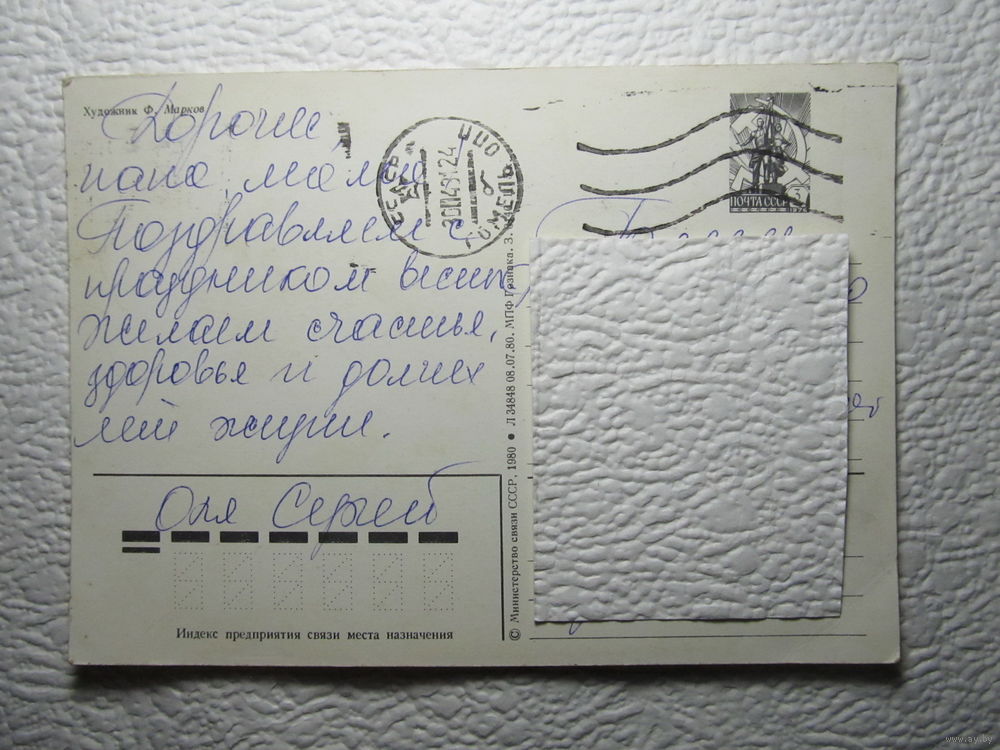 Художник Ф. Марков
Дорогие
папа, мама
Поздравляем с
праздником весны,
желаем счастья,
здоровья и долгих
лет жизни.
Оля Сергей
Индекс предприятия связи места назначения
© Министерство связи СССР. 1980 ● Л 34848 08.07.80. МПФ Гознака. З.
ГОМЕЛЬ
ПОЧТА СССР
www.ay.by